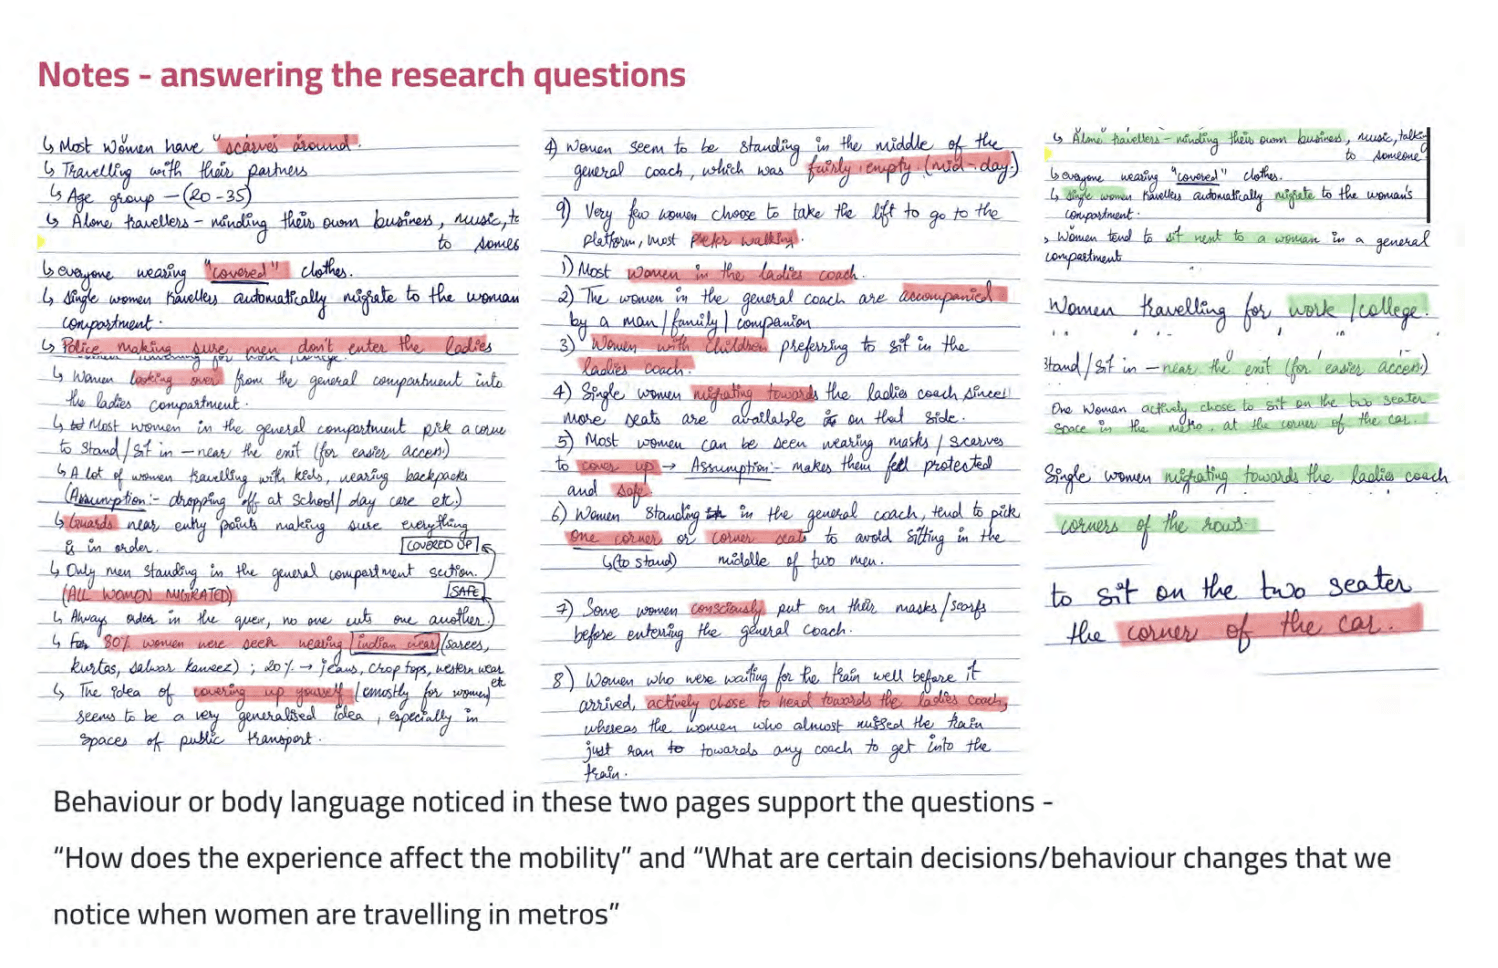 Notes - answering the research questions
↳ Most women have "scarves" around.
↳ Travelling with their partners
↳ Age group – (20-35)
↳ Alone travellers – minding their own business, music, t
to someo
↳ everyone wearing "covered" clothes.
↳ Single women travellers automatically migrate to the woman
compartment.
↳ Police making sure men don't enter the ladies
↳ Women looking over from the general compartment into
the ladies compartment.
↳ Most women in the general compartment pick a corne
to stand/sit in – near the exit (for easier access)
↳ A lot of women travelling with kids, wearing backpacks
(Assumption:- dropping off at school/day care etc.)
↳ Guards near entry points making sure everything
is in order.
COVERED UP
↳ Only men standing in the general compartment section.
(ALL WOMEN MIGRATED)
SAFE
↳ Always order in the queue, no one cuts one another.
↳ 80% women were seen wearing indian wear (sarees,
kurtas, salwar kameez) ; 20% → jeans, crop tops, western wear
etc
↳ The idea of covering up yourself (mostly for women)
seems to be a very generalised idea, especially in
spaces of public transport.
4) Women seem to be standing in the middle of the
general coach, which was fairly empty (mid-day.)
9) Very few women choose to take the lift to go to the
platform, most prefer walking.
1) Most women in the ladies coach.
2) The women in the general coach are accompanied
by a man/family/companion
3) Women with children preferring to sit in the
ladies coach.
4) Single women migrating towards the ladies coach since
more seats are available on that side.
5) Most women can be seen wearing masks/scarves
to cover up → Assumption:- makes them feel protected
and safe.
6) Women standing in the general coach, tend to pick
one corner or corner seats to avoid sitting in the
↳(to stand) middle of two men.
7) Some women consciously put on their masks/scarfs
before entering the general coach.
8) Women who were waiting for the train well before it
arrived, actively chose to head towards the ladies coach,
whereas the women who almost missed the train
just ran towards any coach to get into the
train.
↳ Alone travellers – minding their own business, music, talking
to someone
↳ everyone wearing "covered" clothes.
↳ Single women travellers automatically migrate to the woman's
compartment.
› Women tend to sit next to a woman in a general
compartment
Women travelling for work/college.
stand/sit in – near the exit (for easier access)
One woman actively chose to sit on the two seater
space in the metro, at the corner of the car.
Single women migrating towards the ladies coach
corners of the rows.
to sit on the two seater
the corner of the car.
Behaviour or body language noticed in these two pages support the questions -
“How does the experience affect the mobility” and “What are certain decisions/behaviour changes that we
notice when women are travelling in metros”